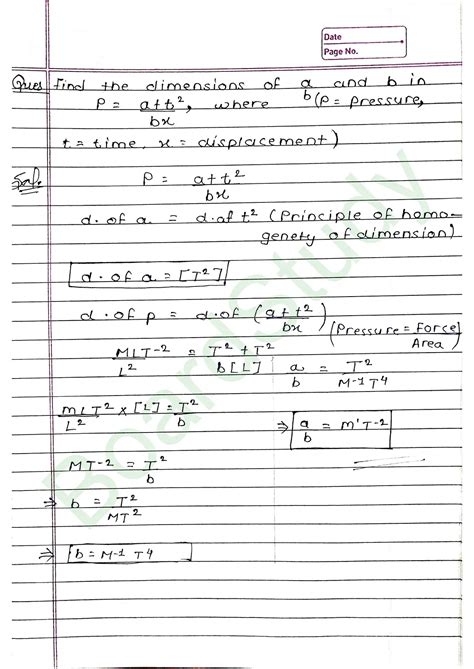 Date
Page No.
Ques Find the dimensions of a and b in
P = a+t²/bx, where b(P = pressure,
t = time, x = displacement)
Sol. P = a+t²/bx
d. of a = d.of t² (Principle of homo-
genety of dimension)
d. of a = [T²]
d. of p = d.of (a+t²/bx) (Pressure = Force/Area)
MLT-2/L² = T²+T²/b[L]
a/b = T²/M-1T4
MLT²/L² × [L] = T²/b
⇒ a/b = M'T-2
MT-2 = T²/b
⇒ b = T²/MT²
⇒ b = M-1 T4
BoardStudy